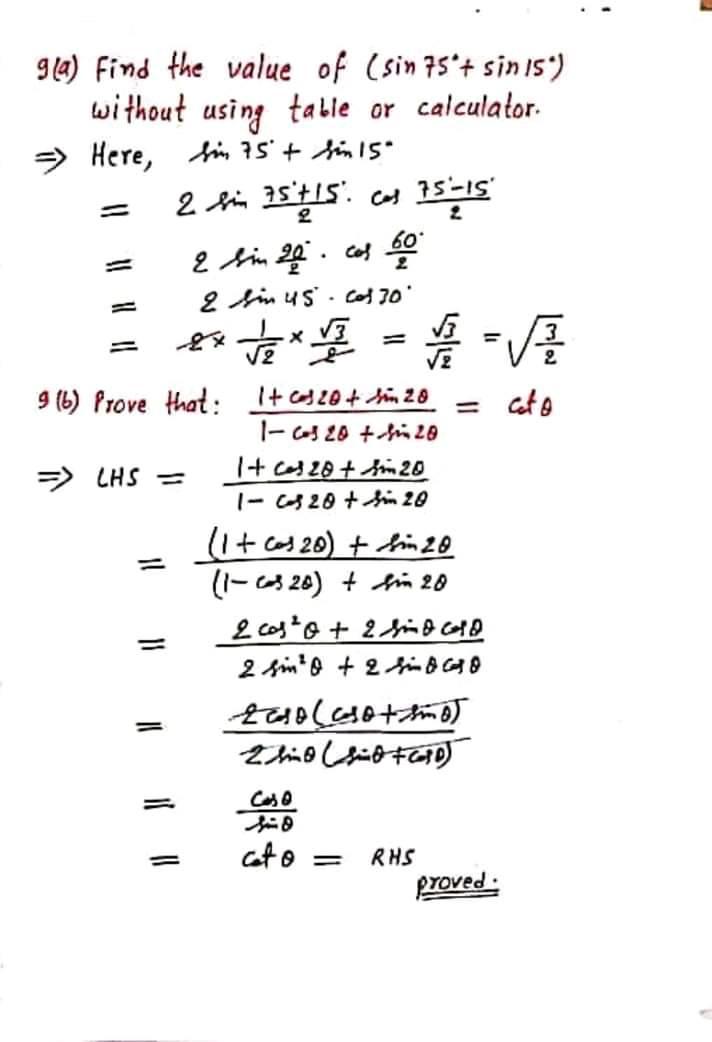 9(a) Find the value of (sin 75°+ sin 15°)
without using table or calculator.
⇒ Here, sin 75° + sin 15°
= 2 sin (75°+15°)/2 . cos (75°-15°)/2
= 2 sin 90°/2 . cos 60°/2
= 2 sin 45° . cos 30°
= 2 × 1/√2 × √3/2 = √3/√2 = √(3/2)
9(b) Prove that: (1 + cos 2θ + sin 2θ)/(1 - cos 2θ + sin 2θ) = cot θ
⇒ LHS = (1 + cos 2θ + sin 2θ)/(1 - cos 2θ + sin 2θ)
= ((1 + cos 2θ) + sin 2θ)/((1 - cos 2θ) + sin 2θ)
= (2 cos²θ + 2 sin θ cos θ)/(2 sin²θ + 2 sin θ cos θ)
= 2 cos θ (cos θ + sin θ)/2 sin θ (sin θ + cos θ)
= cos θ/sin θ
= cot θ = RHS
proved.